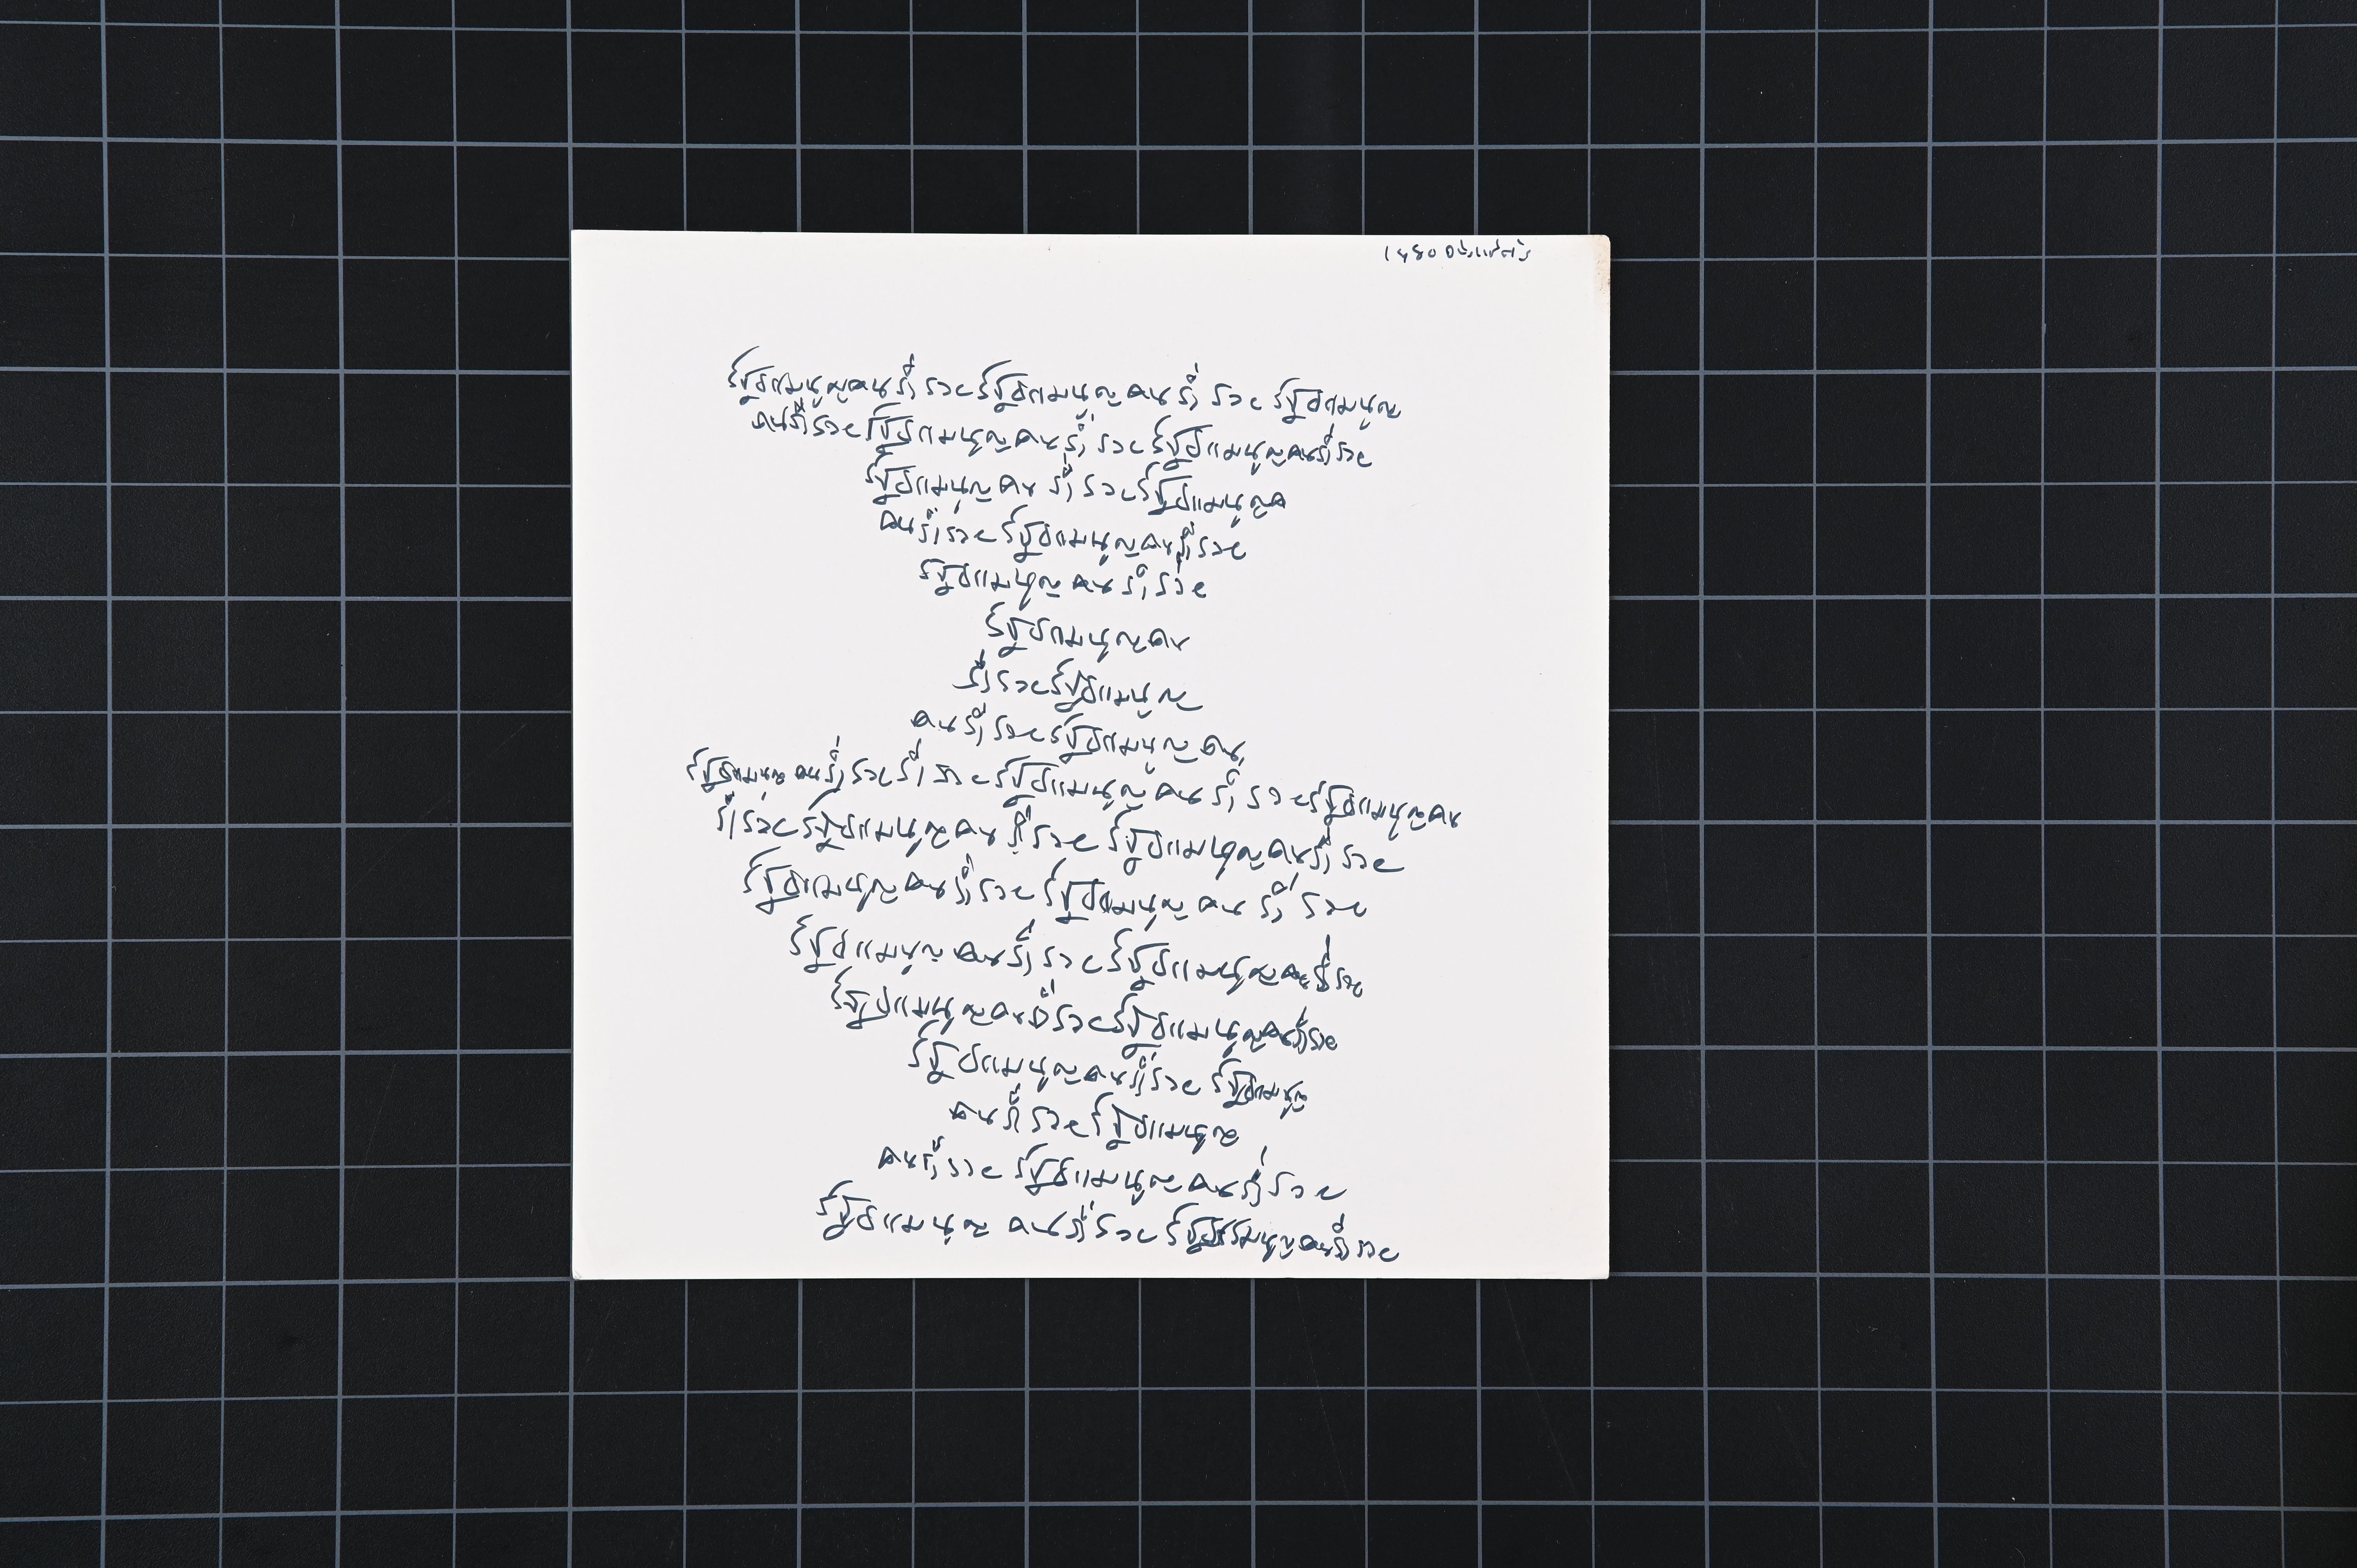 รัฐธรรมนูญคนร่ำรวยรัฐธรรมนูญคนร่ำรวยรัฐธรรมนูญ
คนร่ำรวยรัฐธรรมนูญคนร่ำรวยรัฐธรรมนูญคนร่ำรวย
รัฐธรรมนูญคนร่ำรวยรัฐธรรมนูญค
คนร่ำรวยรัฐธรรมนูญคนร่ำรวย
รัฐธรรมนูญคนร่ำรวย
รัฐธรรมนูญคน
ร่ำรวยรัฐธรรมนูญ
คนร่ำรวยรัฐธรรมนูญคน
รัฐธรรมนูญคนร่ำรวยร่ำรวยรัฐธรรมนูญคนร่ำรวยรัฐธรรมนูญคน
ร่ำรวยรัฐธรรมนูญคนร่ำรวยรัฐธรรมนูญคนร่ำรวย
รัฐธรรมนูญคนร่ำรวยรัฐธรรมนูญคนร่ำรวย
รัฐธรรมนูญคนร่ำรวยรัฐธรรมนูญคนร่ำรวย
รัฐธรรมนูญคนร่ำรวยรัฐธรรมนูญคนร่ำรวย
รัฐธรรมนูญคนร่ำรวยรัฐธรรมนูญ
คนร่ำรวยรัฐธรรมนูญ
คนร่ำรวยรัฐธรรมนูญคนร่ำรวย
รัฐธรรมนูญคนร่ำรวยรัฐธรรมนูญคนร่ำรวย